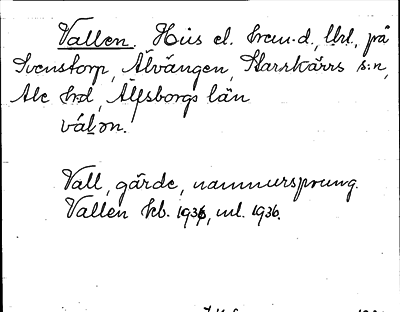 Vallen. Hus el. hem.d., lht., på
Svenstorp, Älvängen, Starrkärrs s:n,
Ale hd, Älfsborgs län
válən.
Vall, gärde, namnursprung.
Vallen kb. 1936, ml. 1936.